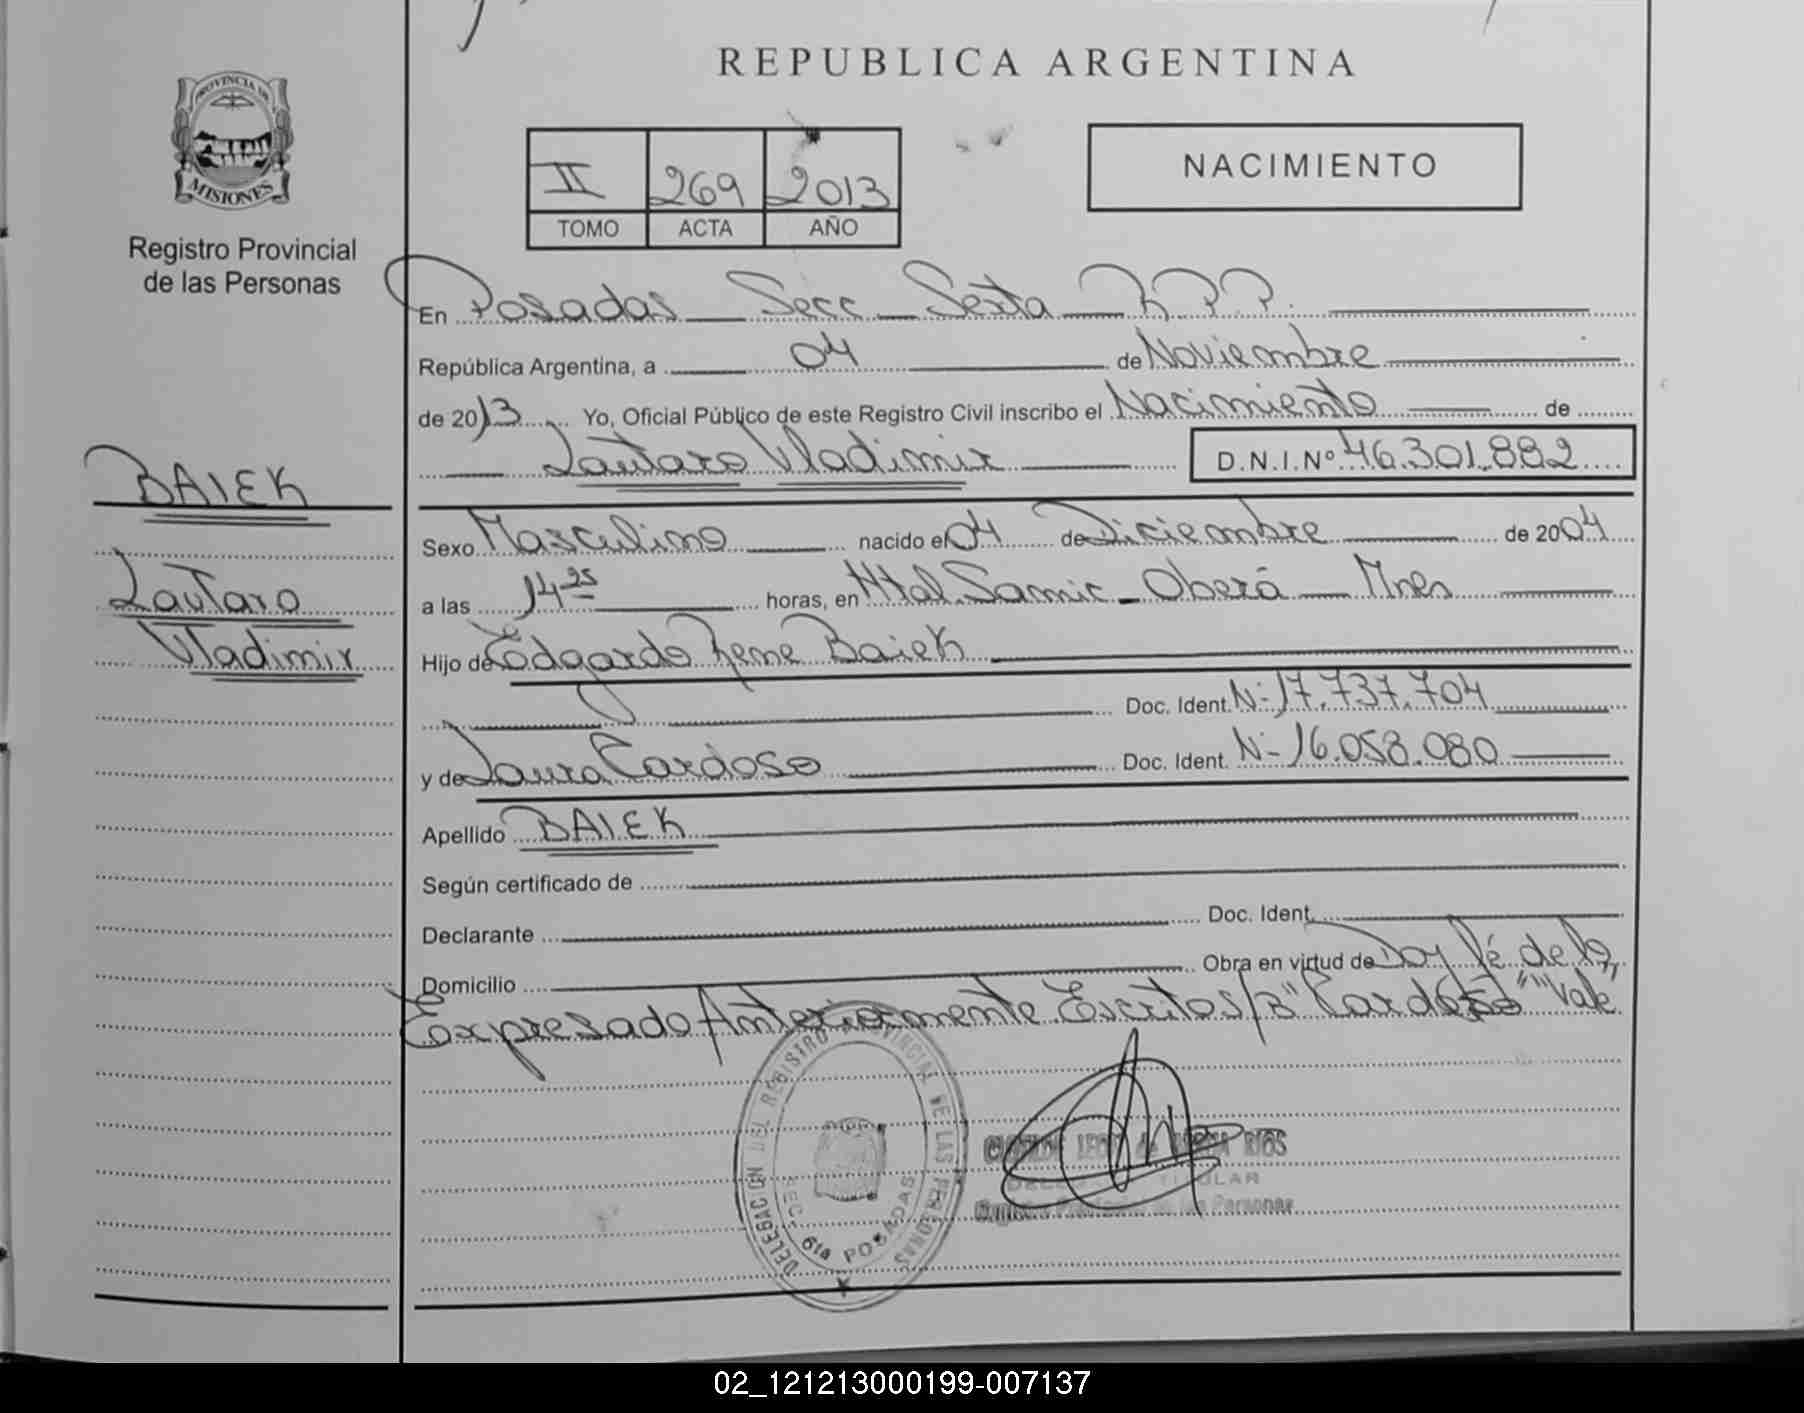 REPUBLICA ARGENTINA
PROVINCIA DE
MISIONES
Registro Provincial
de las Personas
II 269 2013
TOMO ACTA AÑO
NACIMIENTO
En Posadas Secc Sexta R.P.P.
República Argentina, a 04 de Noviembre
de 2013 Yo, Oficial Público de este Registro Civil inscribo el Nacimiento de
Lautaro Vladimir D.N.I.Nº 46.301.882
BAIEK
Lautaro
Vladimir
Sexo Masculino nacido el 04 de Diciembre de 2004
a las 14 25 horas, en Htal. Samic - Oberá Mnes
Hijo de Edgardo Rene Baiek
Doc. Ident. Nº 17.737.704
y de Laura Cardoso Doc. Ident. Nº 16.058.080
Apellido BAIEK
Según certificado de
Declarante Doc. Ident.
Domicilio Obra en virtud de Doy fé de lo
Expresado Anteriormente Escritos/B "Cardoso" "Vale"
DELEGACION DEL REGISTRO PROVINCIAL DE LAS PERSONAS
SEC. 6ta POSADAS
RIOS
TITULAR
de las Personas
02_121213000199-007137